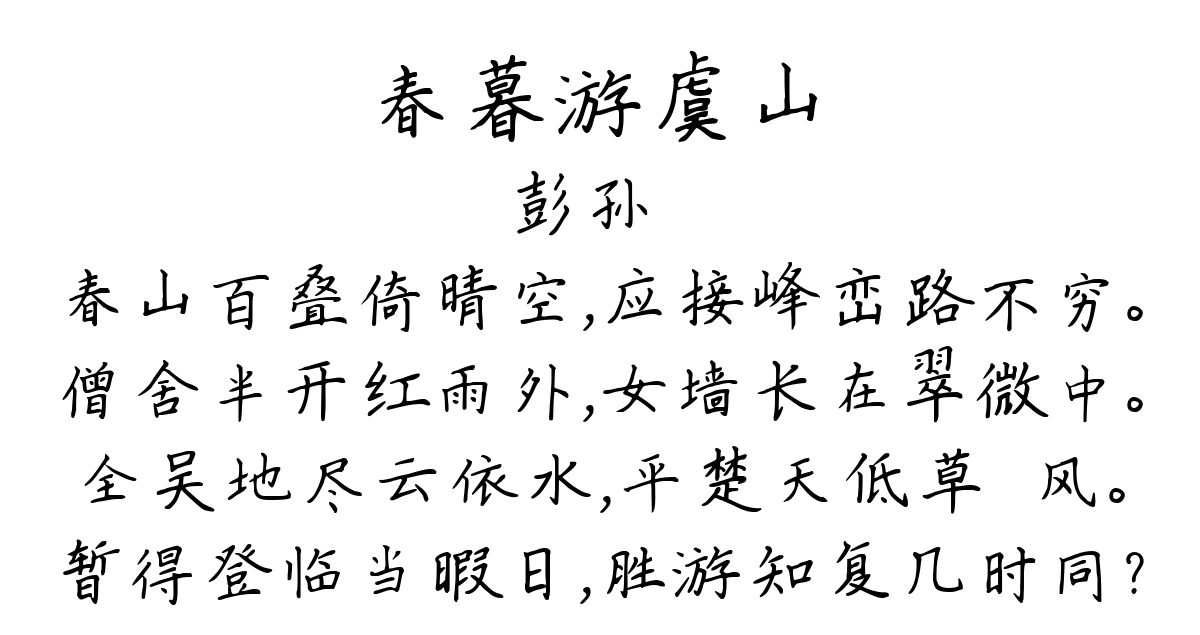 春暮游虞山
彭孙
春山百叠倚晴空,应接峰峦路不穷。
僧舍半开红雨外,女墙长在翠微中。
全吴地尽云依水,平楚天低草 风。
暂得登临当暇日,胜游知复几时同?